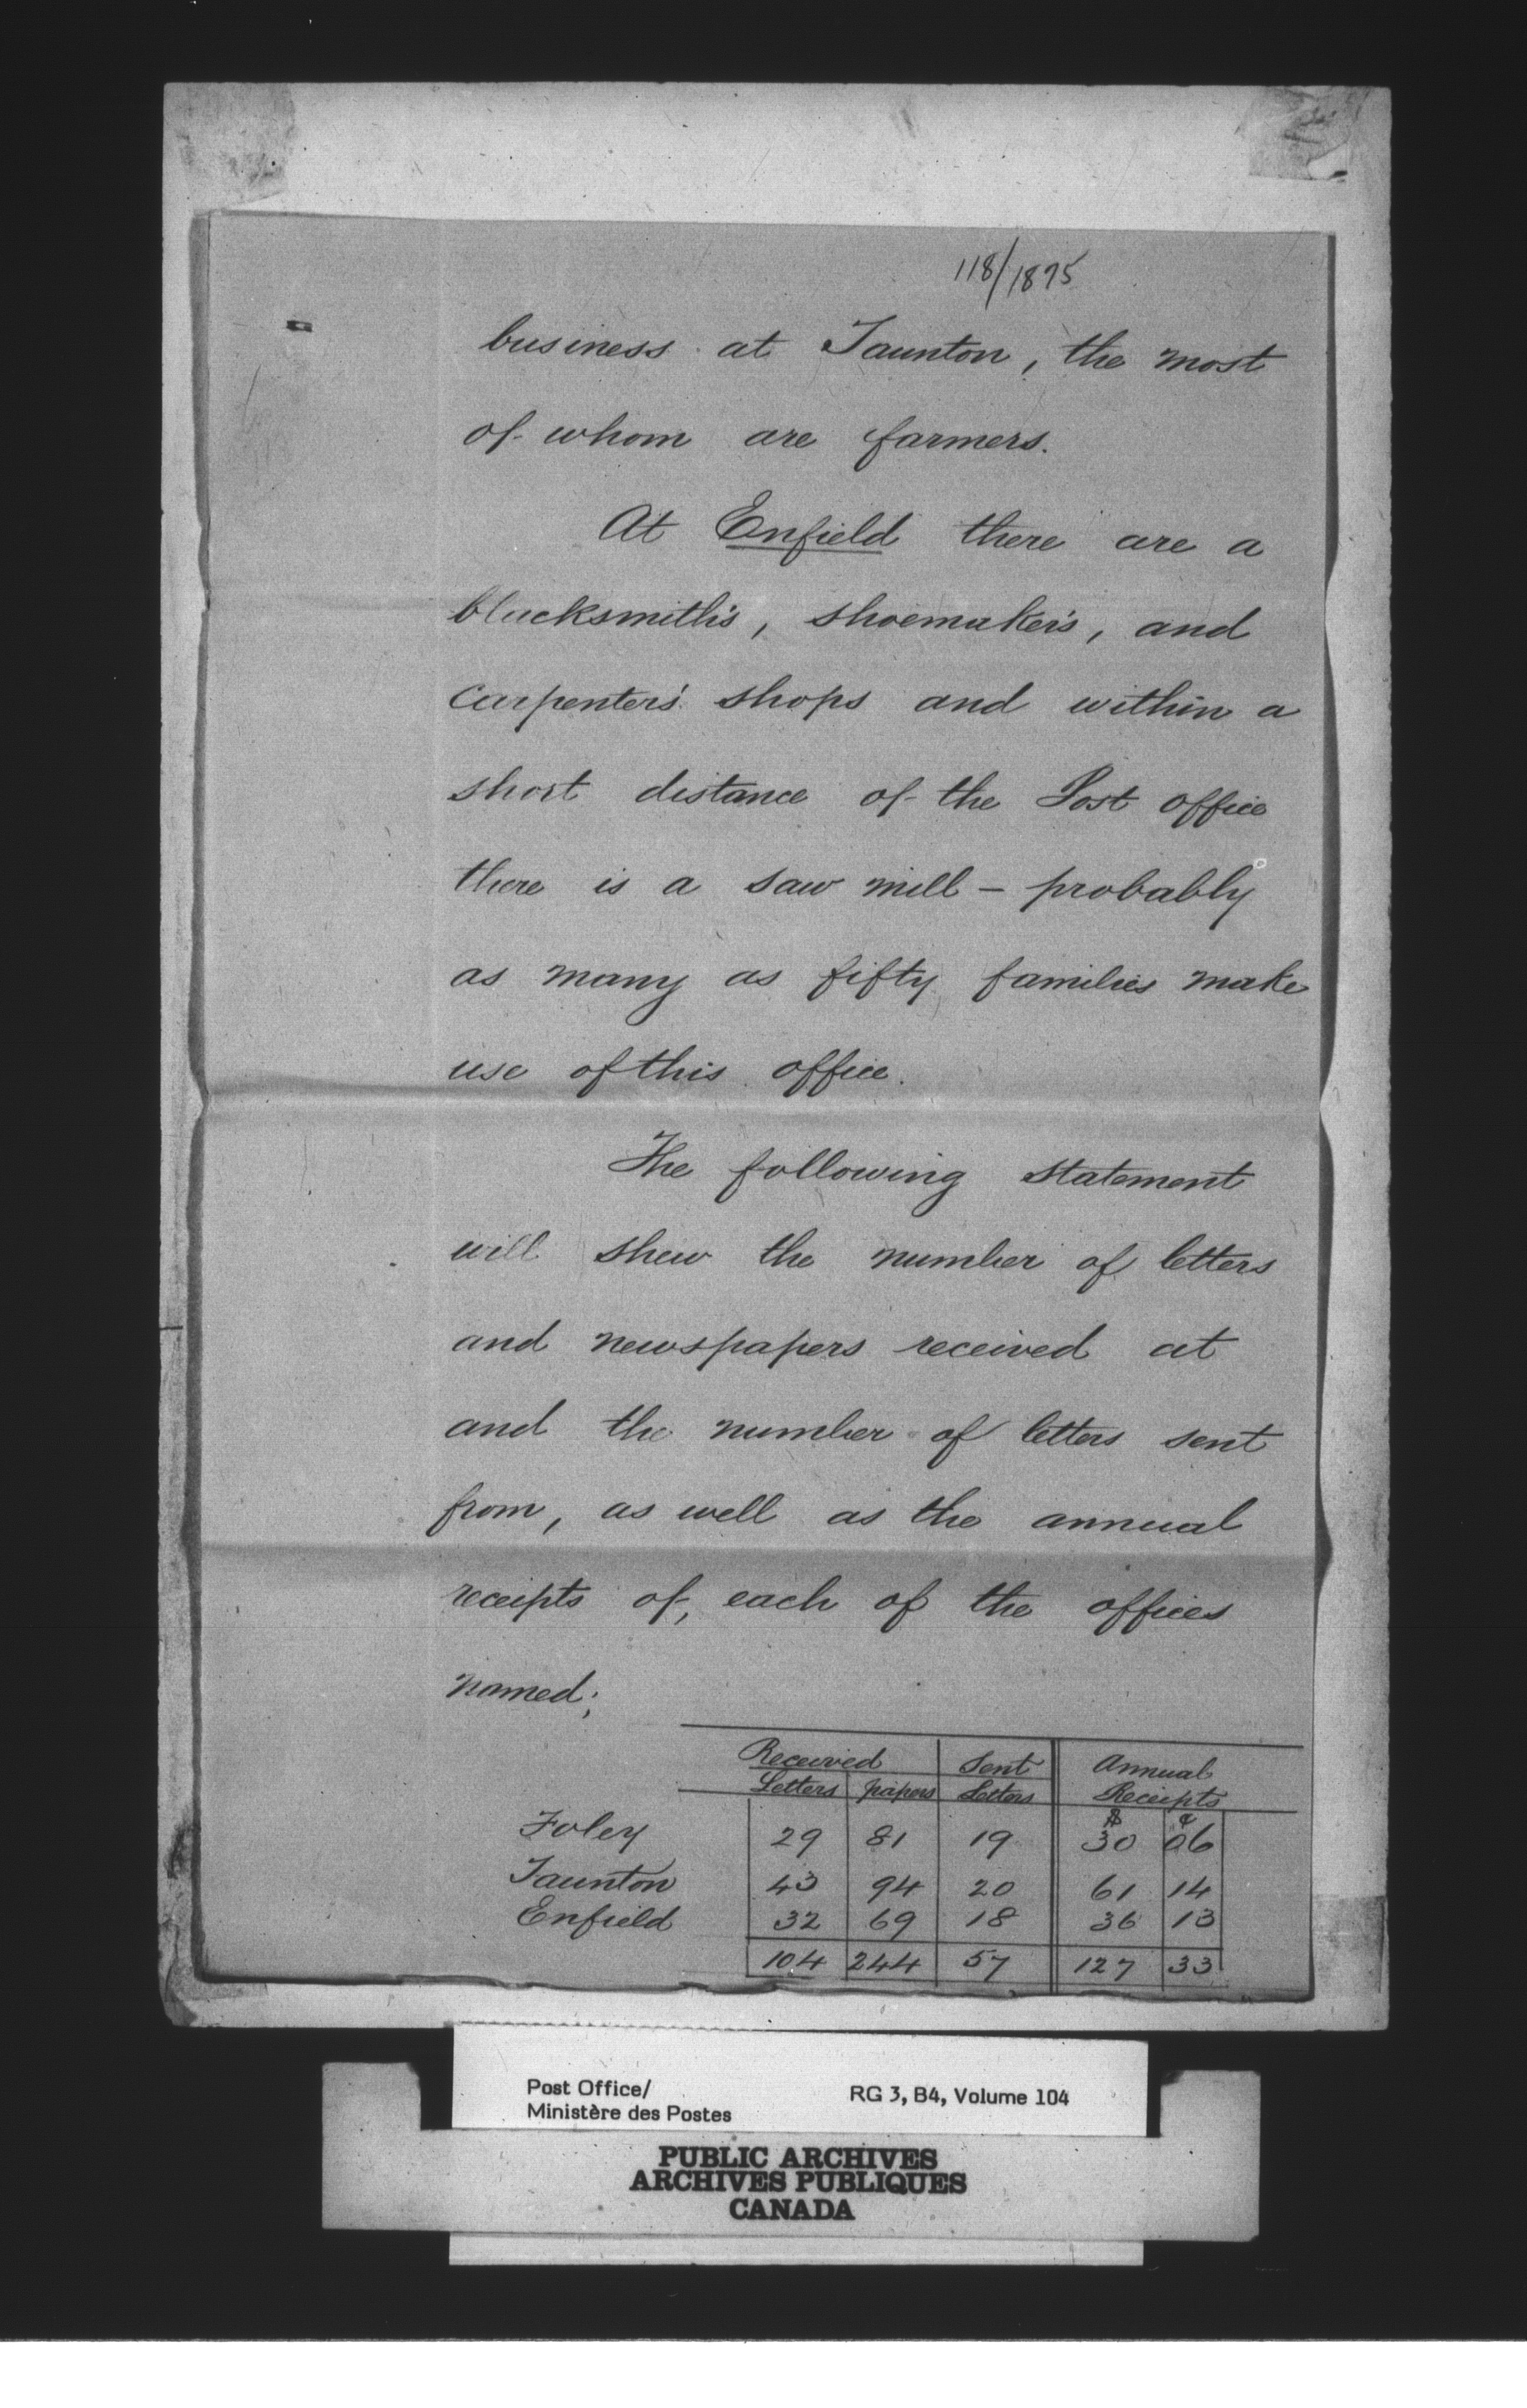 118/1875
business at Taunton, the most
of whom are farmers.
At Enfield there are a
blacksmith's, shoemaker's, and
carpenter's shops and within a
short distance of the Post office
there is a saw mill - probably
as many as fifty families make
use of this office.
The following statement
will shew the number of letters
and newspapers received at
and the number of letters sent
from, as well as the annual
receipts of, each of the offices
named;
Received Sent Annual
Letters papers Letters Receipts
$ c
Foley 29 81 19 30 06
Taunton 43 94 20 61 14
Enfield 32 69 18 36 13
104 244 57 127 33
Post Office/ RG 3, B4, Volume 104
Ministère des Postes
PUBLIC ARCHIVES
ARCHIVES PUBLIQUES
CANADA